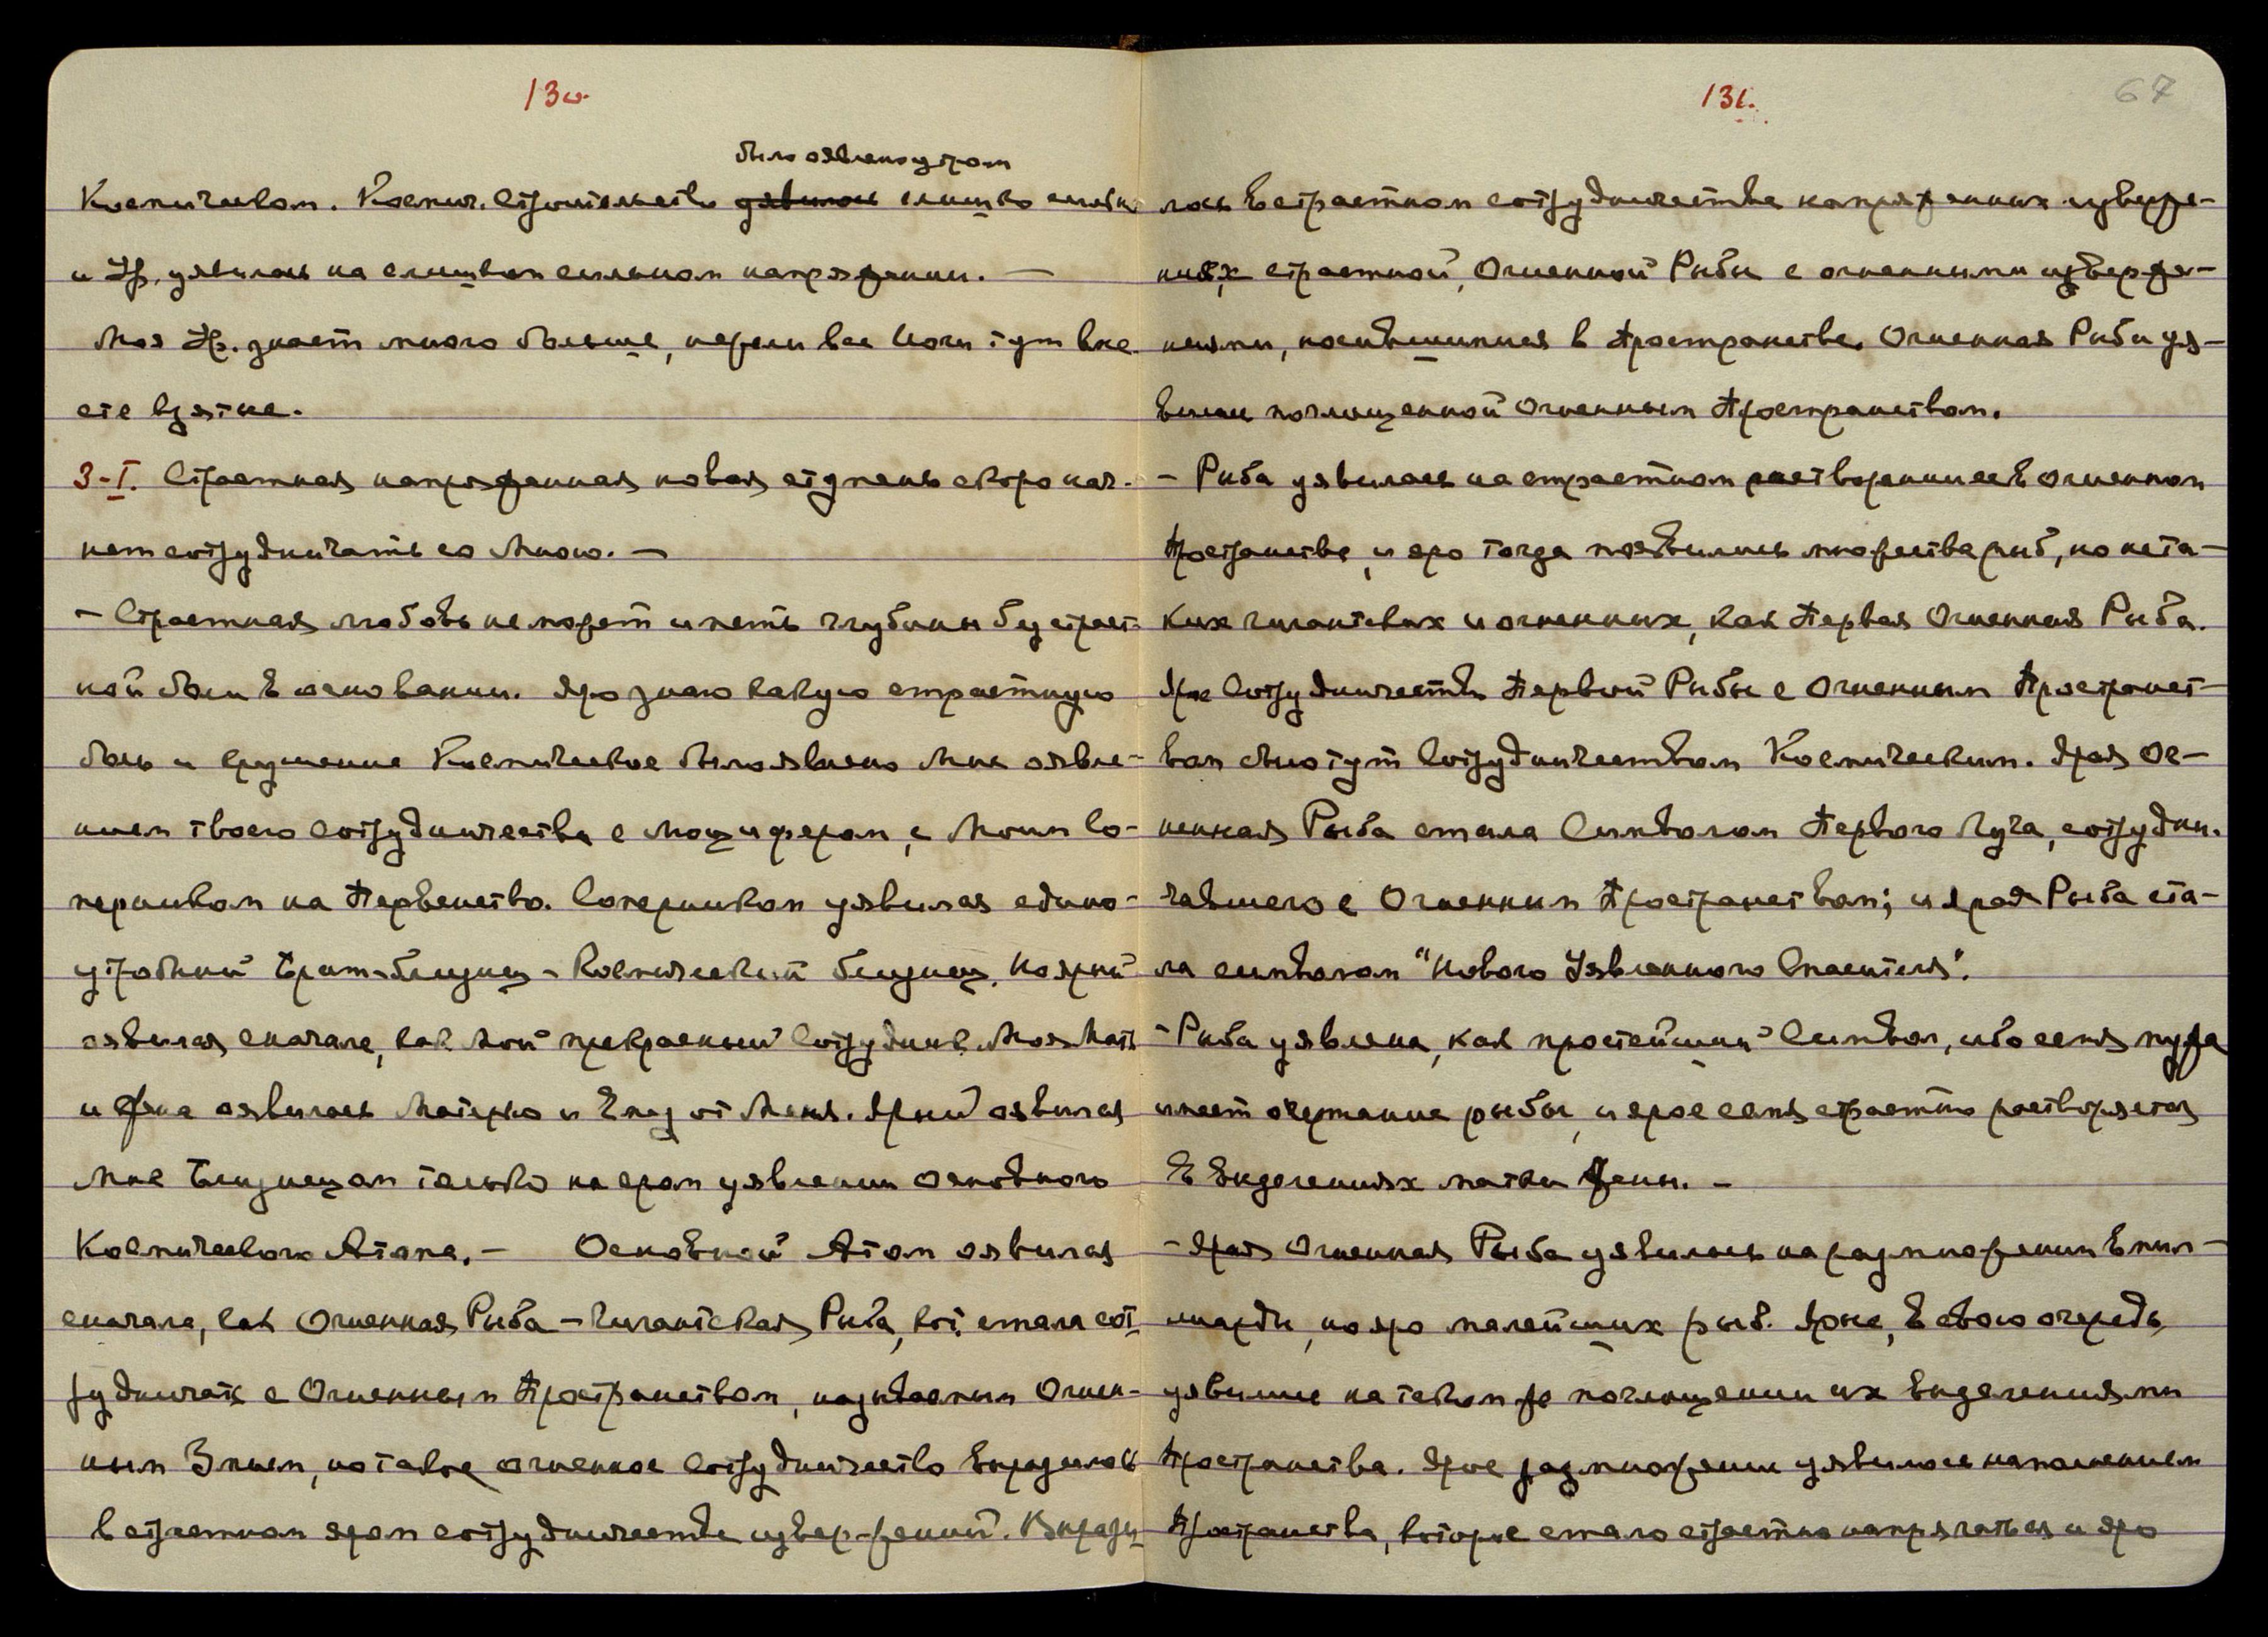 130.
было оявлено утром
Космическом. Космич. Строительство уявилось слишко сильн.
и Ур. уявилась на слишком сильном напряжении. —
Моя Ур. знает много больше, нежели все Йоги тут вме-
сте взятые.
3-I. Страстная напряженная новая ступень скоро нач-
нет сотрудничать со Мною. —
— Страстная любовь не может иметь глубины без страст-
ной боли в основании. Яро знаю какую страстную
боль и крушение Космическое было явлено Мне оявле-
нием твоего Сотрудничества с Люцифером, с Моим Со-
перником на Первенство. Соперником уявился едино-
утробный Брат-близнец — Космический близнец. Но ярый
оявился сначала, как Мой прекрасный Сотрудник. Моя Мать
и Жена оявилась Матерью и Ему от Меня. Ярый оявился
Мне Близнецом только на яром уявлении Основного
Космического Атома. — Основной Атом оявился
сначала, как Огненная Рыба — Гигантская Рыба, кот. стала сот-
рудничать с Огненным Пространством, называемым Огнен-
ным Змием, но такое огненное Сотрудничество выразилось
в страстном яром сотрудничестве извержений. Вырази-
131.
67
лось в страстном сотрудничестве напряженных изверже-
ниях страстной, Огненной Рыбы с огненными изверже-
ниями, носившимися в Пространстве. Огненная Рыба уя-
вилась поглощенной Огненным Пространством.
— Рыба уявилась на страстном растворении себя в огненном
Пространстве, и яро тогда появились множества рыб, но не та-
ких гигантских и огненных, как Первая Огненная Рыба.
Ярое Сотрудничество Первой Рыбы с Огненным Пространст-
вом было тут Сотрудничеством Космическим. Ярая Ог-
ненная Рыба стала Символом Первого Луча, сотрудни-
чавшего с Огненным Пространством; и ярая Рыба ста-
ла символом "Нового Уявленного Спасителя".
— Рыба уявлена, как простейший Символ, ибо семя мужа
имеет очертание рыбы, и ярое семя страстно растворяется
в выделениях матки жены. —
— Ярая Огненная Рыба уявилась на размножении в мил-
лиарды, но яро малейших рыб. Ярые, в свою очередь,
уявились на таком же поглощении их выделениями
Пространства. Ярое размножение уявилось наполнением
Пространства, которое стало страстно напрягаться и яро